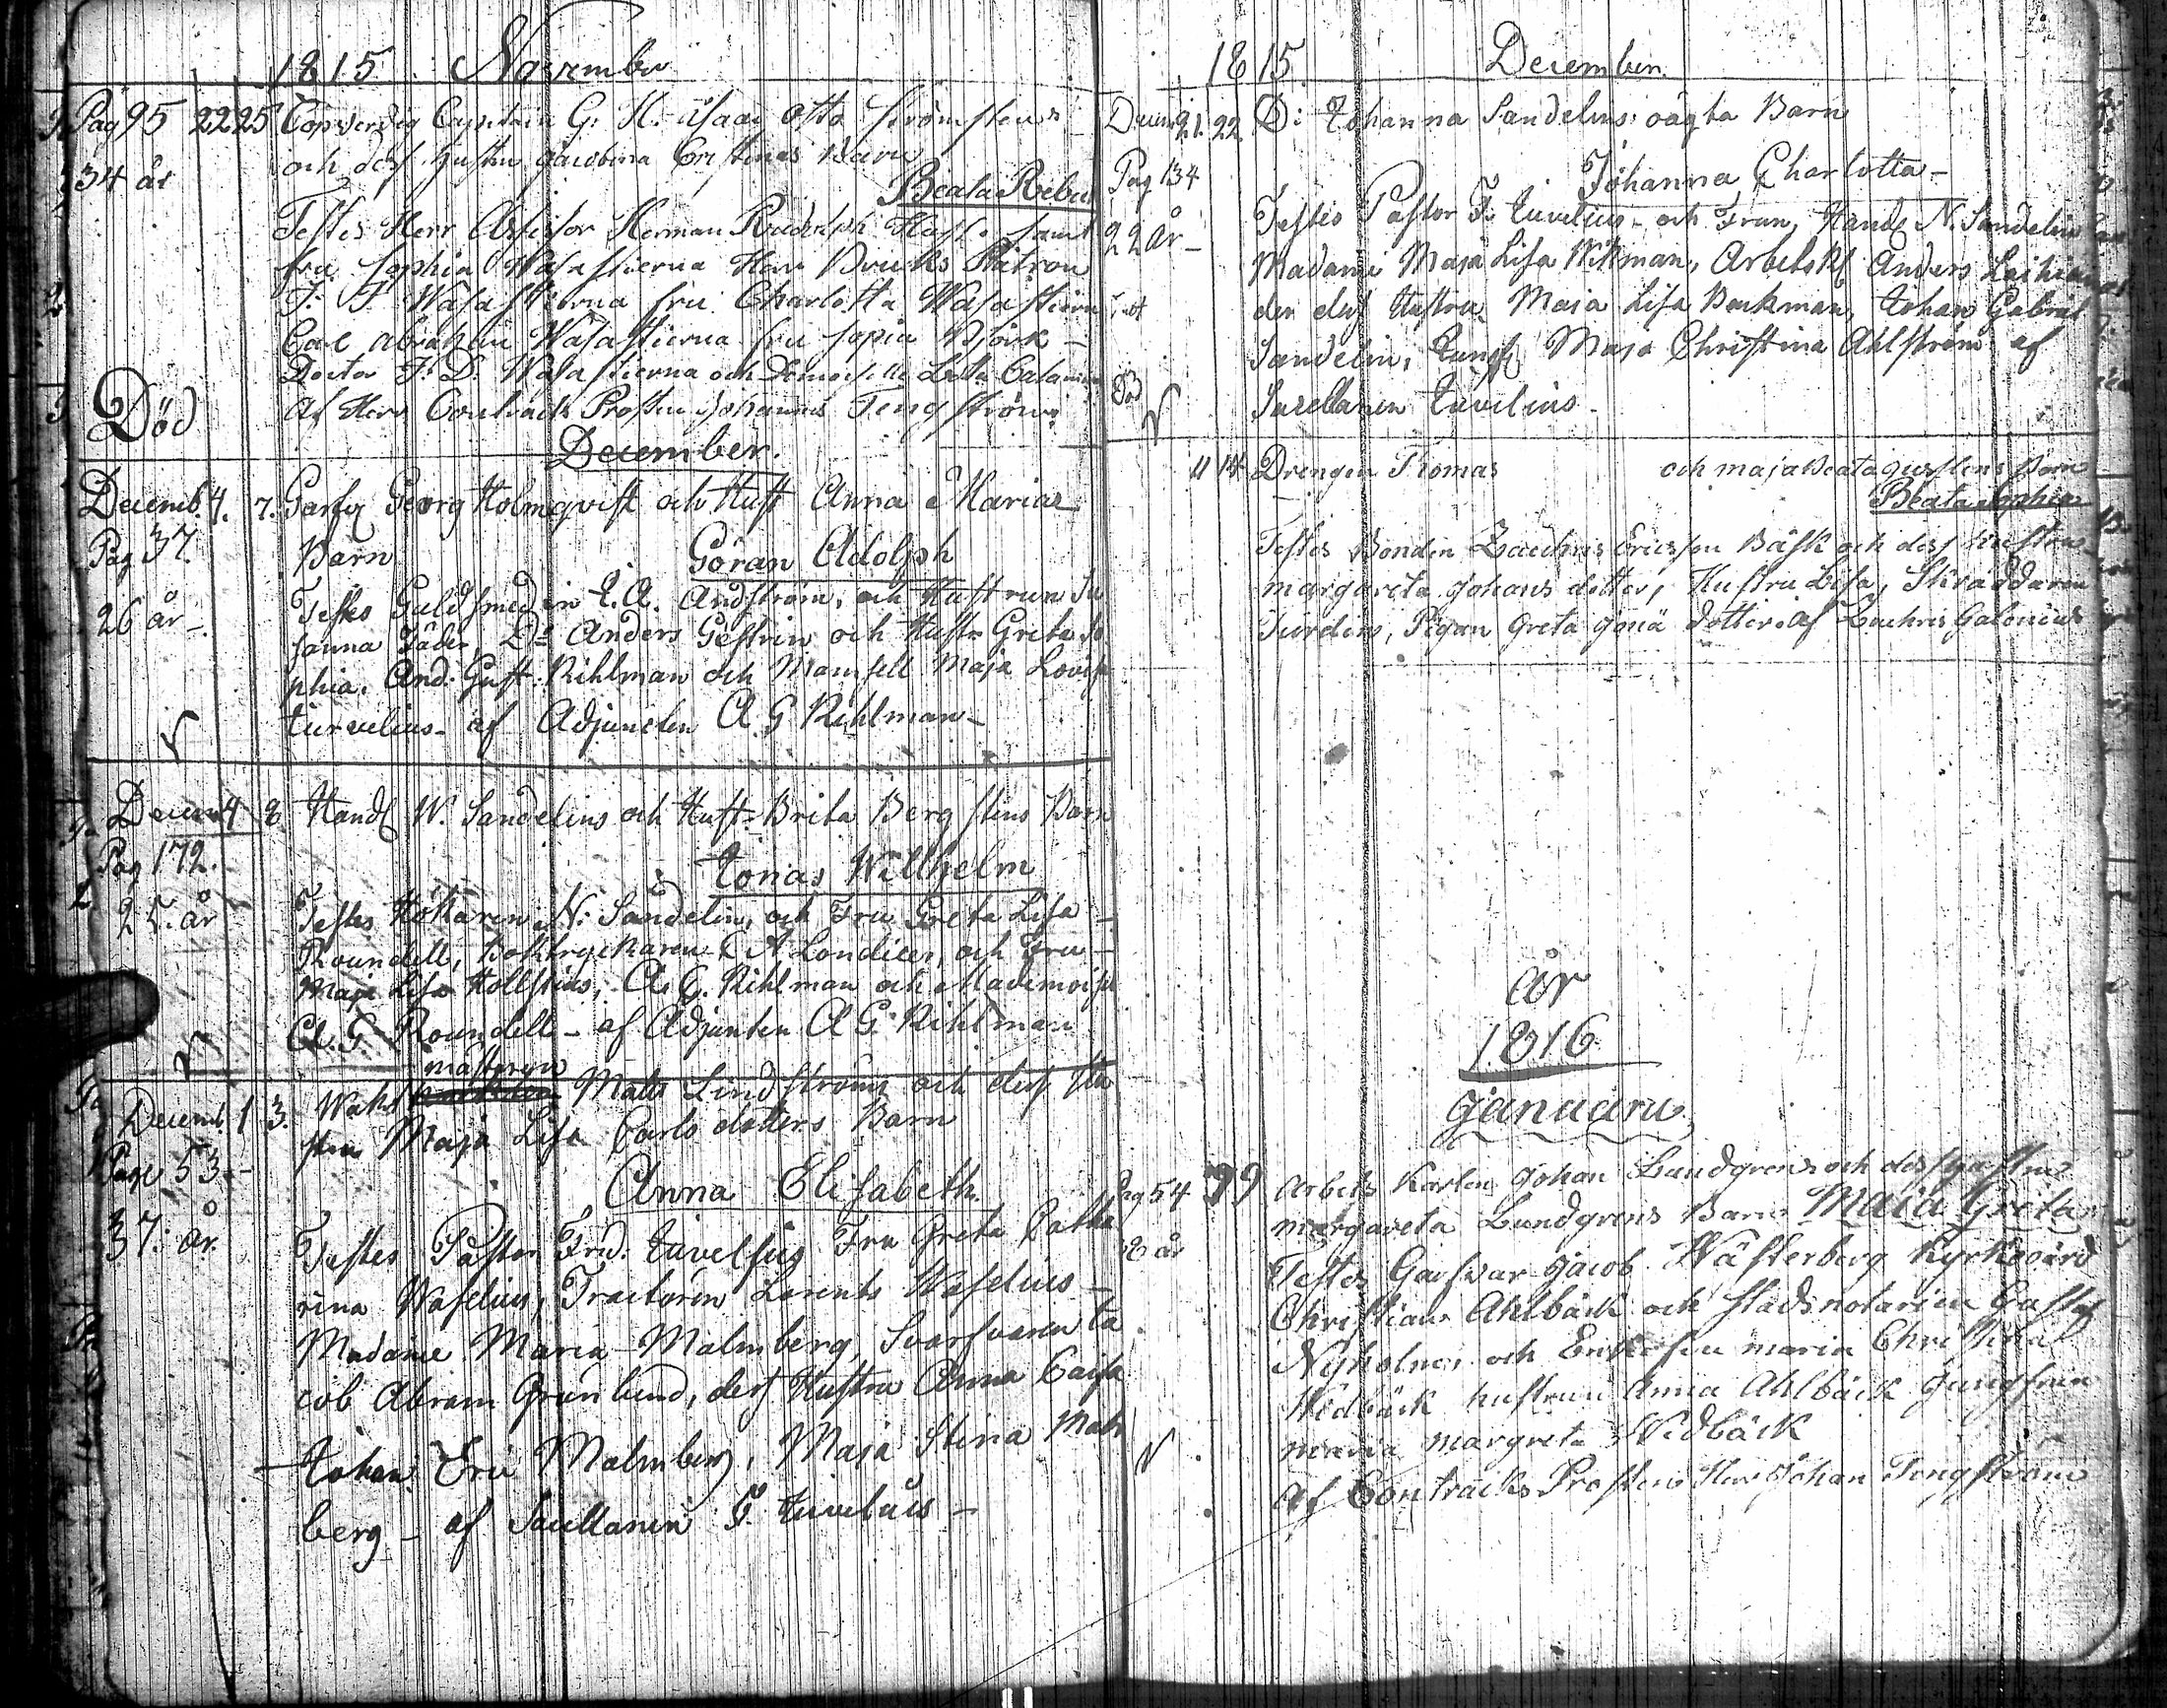 1815 November
Pag 95 22 25 Captain G. H. Isaac Otto Strömstens
34 år och dess hustru Jacobina Cristinas Barn
Beata Rebec
Testes Herr Assessor Herman Rudolph samt
fru Sophia Wasastierna Herr Bruks Patron
J: F Wasastierna fru Charlotta Wasastiern
Carl Abraham Wasastierna fru Sopia Björk -
Docto J. D. Wasastierna och Demoiselle
Död
af Herr Contracts Prosten Johannes Tengström
December.
Decemb. 4. 7. Garfv Georg Holmqvist och Hust Anna Marias
Pag 37. Barn Göran Adolph
26 år - Testes Guldsmeden E. A. Andström, och Hustrun Su
sanna Anders Gestrin och Hustr Greta So
phia. And. Gust. Kihlman och Mamsell Maja Lovisa
Tuvelius - af Adjuncten A G Kihlman -
Decem 4 8 Handl W. Sandelins och Hust. Brita Bergstens Barn
Pag 172. Jonas Willhelm
25 år Testes Hökaren N. Sandelin, och Fru Greta Lisa -
Roundell, Boktryckaren C A Londicer, och Fru -
Maja Lisa A. G. Kihlman och Mademoisel
Roundell - af Adjunten A G. Kihlman
mästaren
Decemb. 1 3. Mats Lindströms och dess Hu
stru Maja Lisa Carls dotters Barn
Page 53 -
Anna Elisabeth.
37: år. Testes Pastor Frid. Tuvelius Fru Greta Catha
rina Waselius, Tracteuren Lorents Waselius -
Madame Maria Malmberg, Svarfvaren Ja
cob Abram Grönlund, dess Hustru Anna Caisa
Johan Eric Malmberg, Maja Stina Malm
berg - af Sacellanen F. Tuvelius -
1815 December.
Decem 21. 22 D: Johanna Sandelins oägta Barn
Pag 134 Johanna Charlotta -
22 år - Testes Pastor F. Tuvelius - och Frun, Handl N. Sandelin
Madame Maja Lisa Wikman, Arbetsk Anders
der dess Hustru Maja Lisa Backman, Johan Gabriel
Sandelin, Jungf Maja Christina Ahlström af
Sacellanen Tuvelius -
11 14 Drengen Thomas och Maja Beata Barn
Beata Sophia
Testes Bonden Zachris Ericsson Bäsk och dess hustru
margareta Johans dotter, Hustru Lisa, Skräddaren
Pigan Greta dotter af Zachris Galenius
år
1816
Januari
Pag 54 7 9 Arbets Karlen Johan Lundgrens och dess hustru
margareta Lundgrens Barn Maja Greta
år Testes Garfvar Jacob Wästerberg Kyrkovärd
Christian Ahlbäck och stadsnotarien Gustaf
Nyholm och Enkefru maria Christina
Widbäck hustrun Anna Ahlbäck Jungfrun
maria margreta Widbäck
af Contracks Prosten Herr Johan Tengström